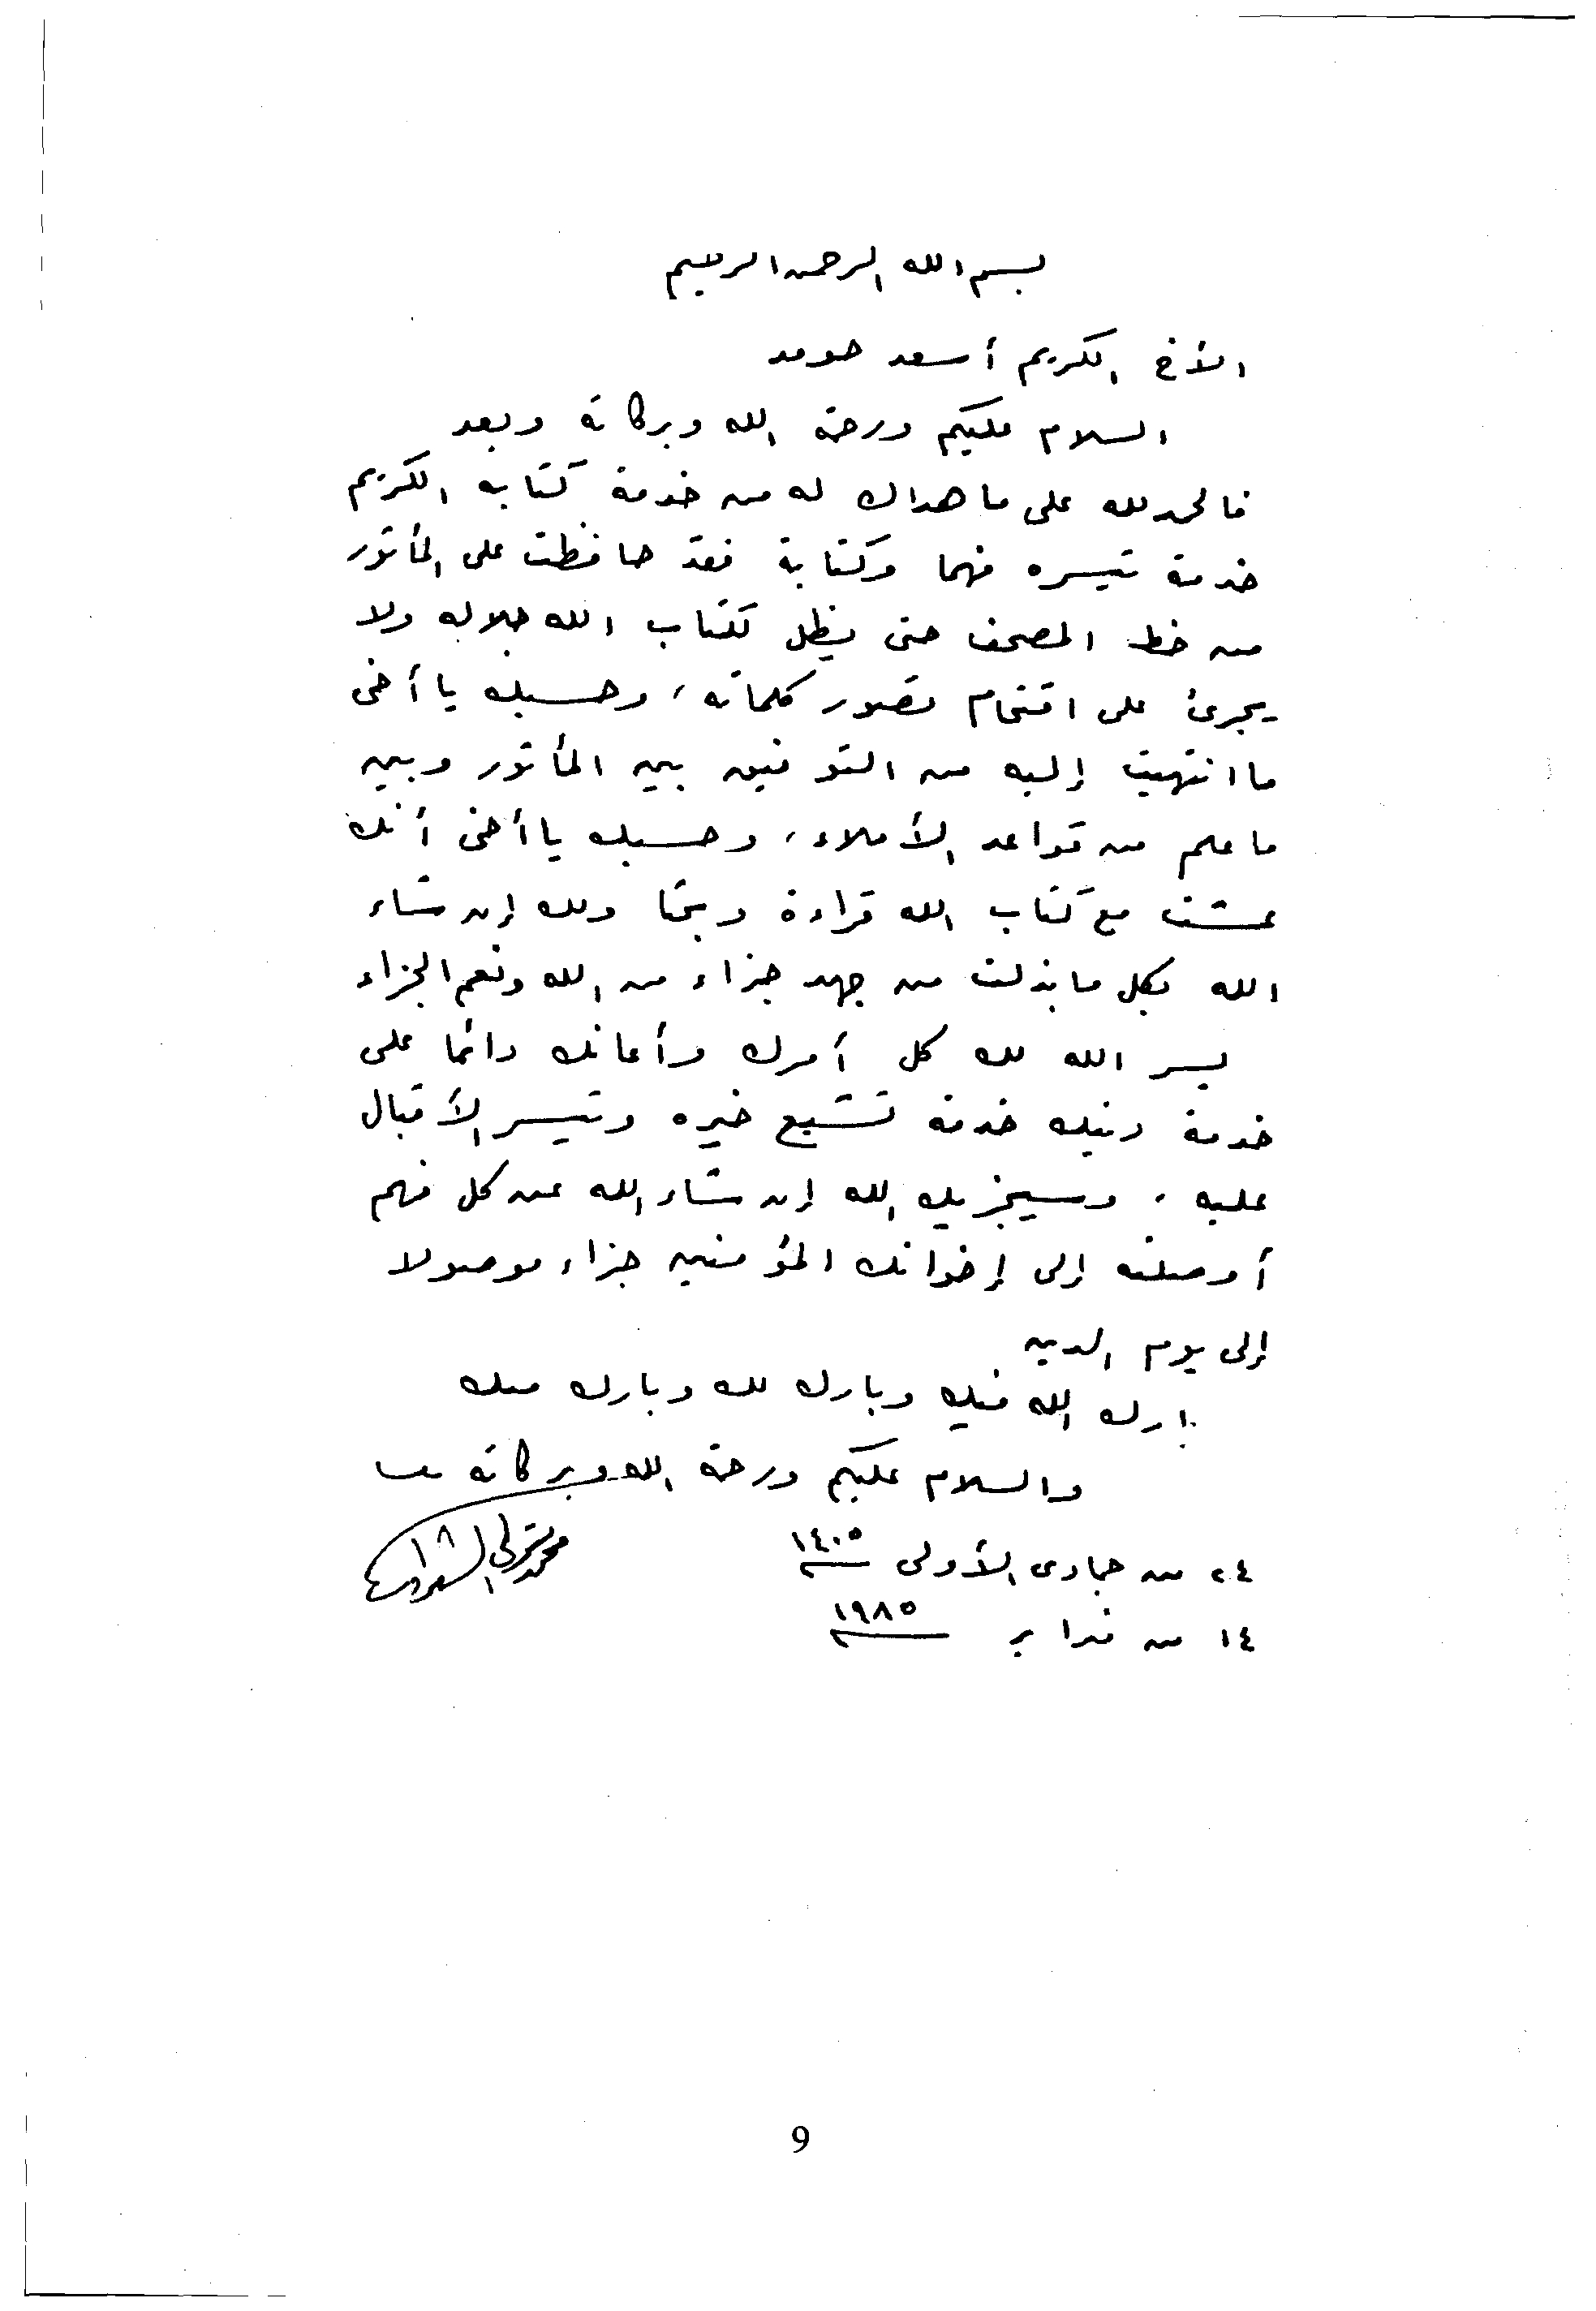 بسم الله الرحمن الرحيم
الأخ الكريم أسعد حومد
السلام عليكم ورحمة الله وبركاته وبعد
فالحمد لله على ما هداك له من خدمة كتابه الكريم
خدمة تيسره فهما وكتابة فقد حافظت على المأثور
من خط المصحف حتى يظل لكتاب الله جلاله ولا
يجرئ على اقتحام تصور كلماته، وحسبك يا أخى
ما انتهيت إليه من التوفيق بين المأثور وبين
ما علم من قواعد الأملاء، وحسبك يا أخى أنك
عشت مع كتاب الله قراءة وبحثا ولك إن شاء
الله بكل ما بذلت من جهد جزاء من الله ونعم الجزاء
يسر الله لك كل أمرك وأعانك دائما على
خدمة دينك خدمة تشيع خيره وتيسر الأقبال
عليه، وسيجزيك الله إن شاء الله عن كل فهم
أوصلته إلى إخوانك المؤمنين جزاء موصولا
إلى يوم الدين
بارك الله فيك وبارك لك وبارك منك
والسلام عليكم ورحمة الله وبركاته
محمد متولى الشعراوى
٢٤ من جمادى الأولى ١٤٠٥
١٤ من فبراير ١٩٨٥
9